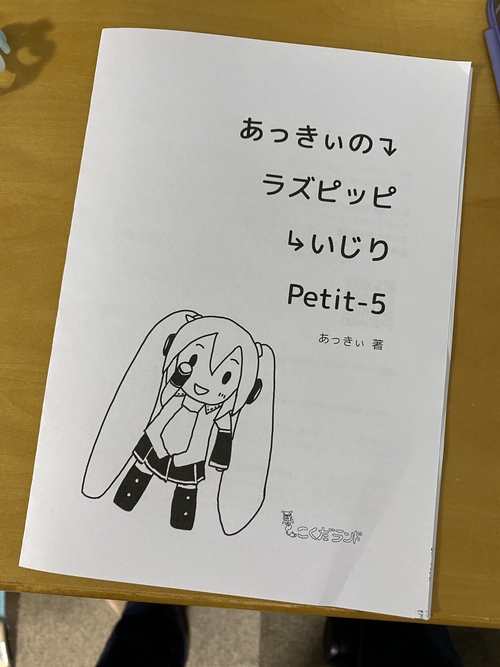 あっきぃの⤵
ラズピッピ
↳いじり
Petit-5
あっきぃ 著
こくだランド